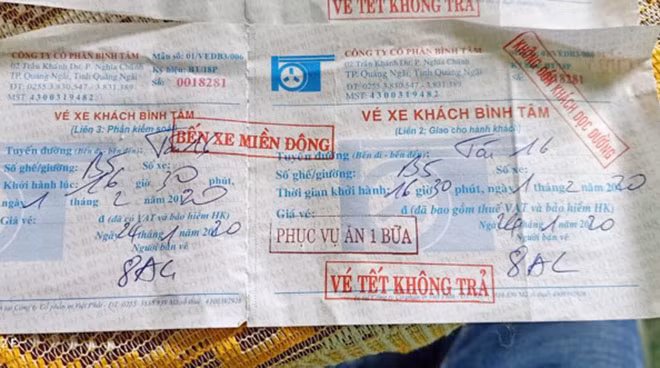 VÉ TẾT KHÔNG TRẢ
CÔNG TY CỔ PHẦN BÌNH TÂM
02 Trần Khánh Dư, P. Nghĩa Chánh
TP. Quảng Ngãi, Tỉnh Quảng Ngãi
ĐT: 0255.3.830.547 - 3.831.389
MST: 4300319482
Mẫu số: 01/VEDB3/006
Ký hiệu: BT/18P
Số: 0018281
VÉ XE KHÁCH BÌNH TÂM
(Liên 3: Phần kiểm soát)
BẾN XE MIỀN ĐÔNG
Tuyến đường (Bến đi - bến đến):
Số ghế/giường: B5 Số xe: Tài 16
Khởi hành lúc: 16 giờ 30 phút,
ngày 1 tháng 2 năm 2020
Giá vé: đ (đã có VAT và bảo hiểm HK)
Ngày 24 tháng 1 năm 2020
Người bán vé
CÔNG TY CỔ PHẦN BÌNH TÂM
02 Trần Khánh Dư, P. Nghĩa Chánh
TP. Quảng Ngãi, Tỉnh Quảng Ngãi
ĐT: 0255.3.830.547 - 3.831.389
MST: 4300319482
01/VEDB3/006
18281
KHÔNG ĐÓN KHÁCH DỌC ĐƯỜNG
VÉ XE KHÁCH BÌNH TÂM
(Liên 2: Giao cho hành khách)
Tuyến đường (Bến đi - bến đến): Tài 16
Số ghế/giường: B5 Số xe:
Thời gian khởi hành: 16 giờ 30 phút, ngày 1 tháng 2 năm 2020
Giá vé: đ (đã bao gồm thuế VAT và bảo hiểm HK)
Ngày 24 tháng 1 năm 2020
Người bán vé
PHỤC VỤ ĂN 1 BỮA
VÉ TẾT KHÔNG TRẢ